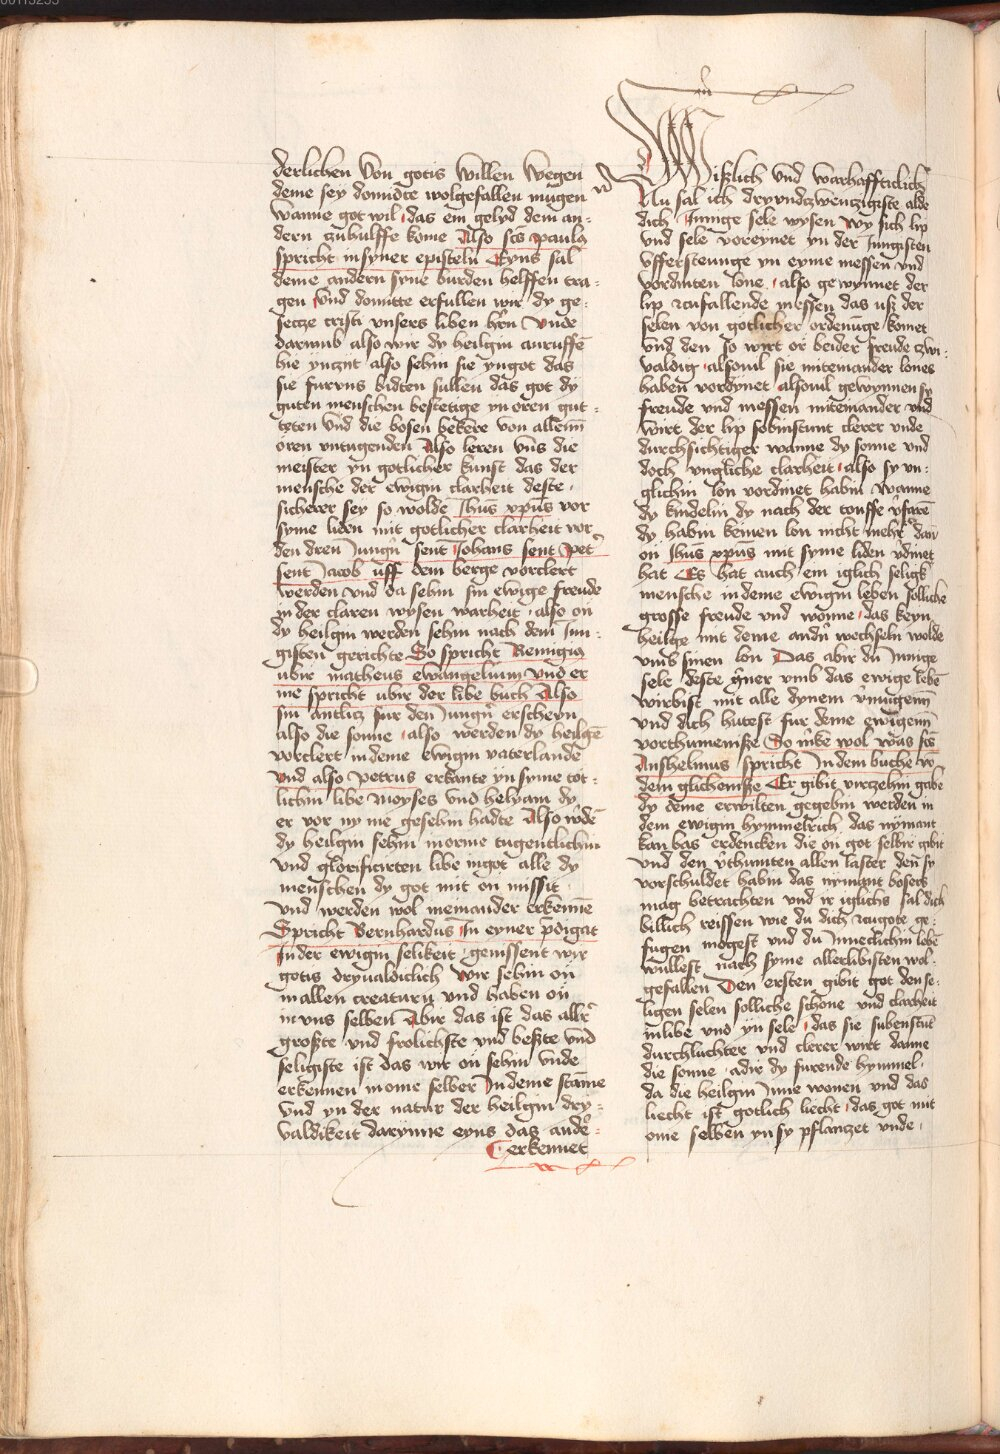 derlichen von gotis willen wegen
deme sey domitte wolgefallen mugen
wanne got wil das ein gelyd dem an-
dern zuhulffe kome Also scs paulꝯ
spricht in syner episteln Eyns sal
deme andern syne burden helffen tra-
gen Und domitte erfullen wir dy ge-
setze cristi unsers liben hern Unde
darumb also wir dy heilgin anruffē
hie ynzit also sehin sie yngot das
sie fur vns bidten sullen das got dy
guten menschen bestetige yn oren gut-
teten Und die bosen bekere von allenn
oren vntugenden Also leren vns die
meister yn gotlicher kunst das der
mensche der ewigin clarheit deste
sicherer sey so wolde Jhus xpus vor
syme liden mit gotlicher clarheit vor
den dren Jungrn sent Johans sent Pet
sent Jacob uff dem berge vorclert
werden Und da sehin sin ewige freude
in der claren wysen warheit also on
dy heilgin werden sehin nach dem Jun-
gisten gerichte So spricht Remigiꝯ
ubir matheus ewangelium und er
me spricht ubir der libe buch Also
sin antlitz fur den Jungrn erscheyn
also die sonne also werden dy heilgē
vorclert in deme ewigin vaterlande
Und also Petrus erkante yn syme tot-
lichin libe Moyses vnd helyam dy
er vor ny me gesehin hadte Also wdē
dy heilgin sehin in orme tugentlichin
Und glorificirten libe ingot alle dy
menschen dy got mit on missit
Und werden wol meinander erkennē
Spricht Bernhardus In eyner pdigat
In der ewigin selikeit genissent wir
gotis dryualdiclich Wir sehin on
in allen creaturn und haben on
in vns selben Abir das ist das allr
großte Und frolichste vnd beßte Und
seligiste ist das wir on sehin Unde
erkennen in ome selber In deme stāme
Und yn der natur der heilgin dry-
valdikeit darynne eyns das ande-
erkennet
Wißlich Und Warhafftiglich
Nu sal ich dryundzwenzigiste alde
dich Innige sele wysen Wy sich lip
Und sele voreynet yn der Jungisten
Ufferstenunge yn eyme messen Und
Vordinten lone also gewynnet der
lip zcufallende messen das uß der
selen von gotlicher ordenūge komet
Und den so wirt or beider freude zwi-
valdig alsouil sie miteinander lones
haben vordynet alsouil gewynnen sy
freude Und messen miteinander Und
Wirt der lip sobinstunt clerer Unde
durchsichtiger Wanne dy sonne Und
doch Ungliche clarheit also sy un-
glichin lon vordinet habin Wanne
dy kindelin dy nach der touffe vfarē
dy habin keinen lon nicht mehr dan
on Jhus xpus mit syme liden vdinet
hat Es hat auch ein iglich selig
mensche in deme ewigin leben solliche
grosse freude Und wonne das keyn
heilge mit deme andn wechseln wolde
Umb sinen lon Das abir du Innige
sele deste gner Umb das ewige lebē
Wirbist mit alle dynem vmugenn
Und dich hutest fur deme ewigenn
vorthumeniße So mke wol was scs
Anshelmus spricht In dem buche vo
dem glicheniße Er gibit virczehin gabe
dy deme erwilten gegebin werden in
dem ewigin hymmelrich das nymant
kan bas erdencken die on got selbir gibit
Und den vthumten allen laster den sy
vorschuldet habin das nymant bosers
mag betrachten Und ir iglichs sal dich
billich reissen wie du dich zcugote ge-
fugen mogest Und du Inneclichin lebē
wullest nach syme allerlibisten wol-
gefallen Den ersten gibit got den se-
ligen selen solliche schone Und clarheit
in libe Und yn sele das sie subenstut
durchluchter Und clerer Wirt danne
die sonne adir dy furende hymmel
da die heilgin Inne wonen Und das
liecht ist gotlich liecht das got mit
ome selben yn sy pflanzet Unde